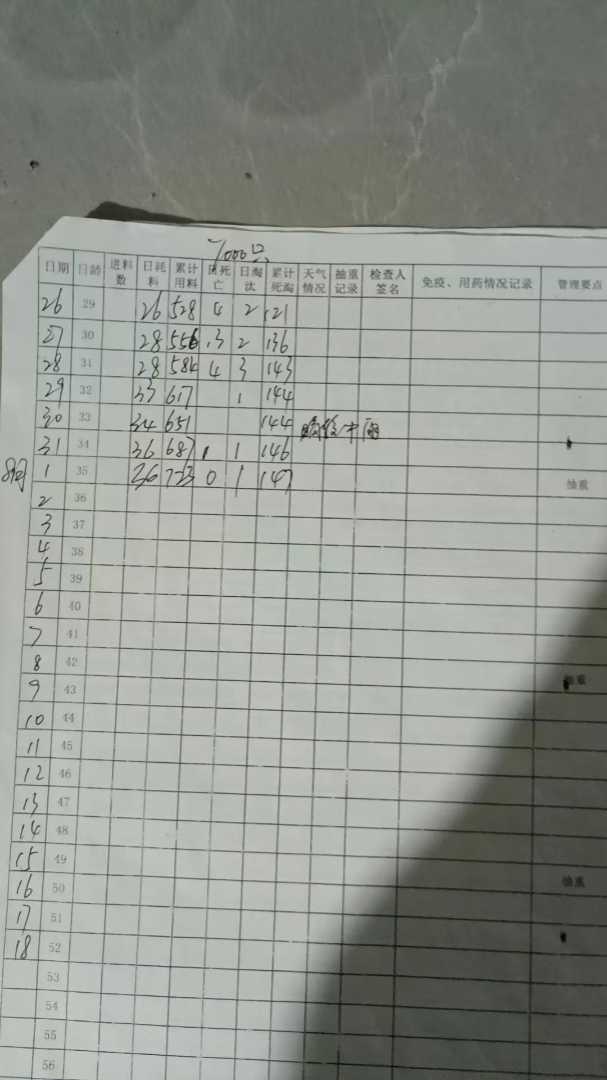 7000只
日期 日龄 进料数 日耗料 累计用料 日死亡 日淘汰 累计死淘 天气情况 抽重记录 检查人签名 免疫、用药情况记录 管理要点
26 29 26 528 4 2 121
27 30 28 556 13 2 136
28 31 28 584 4 3 143
29 32 33 617 1 144
30 33 34 651 144 中雨
31 34 36 687 1 1 146
1 35 36 723 0 1 147 抽重
2 36
3 37
4 38
5 39
6 40
7 41
8 42 抽重
9 43
10 44
11 45
12 46
13 47
14 48
15 49 抽重
16 50
17 51
18 52
53
54
55
56